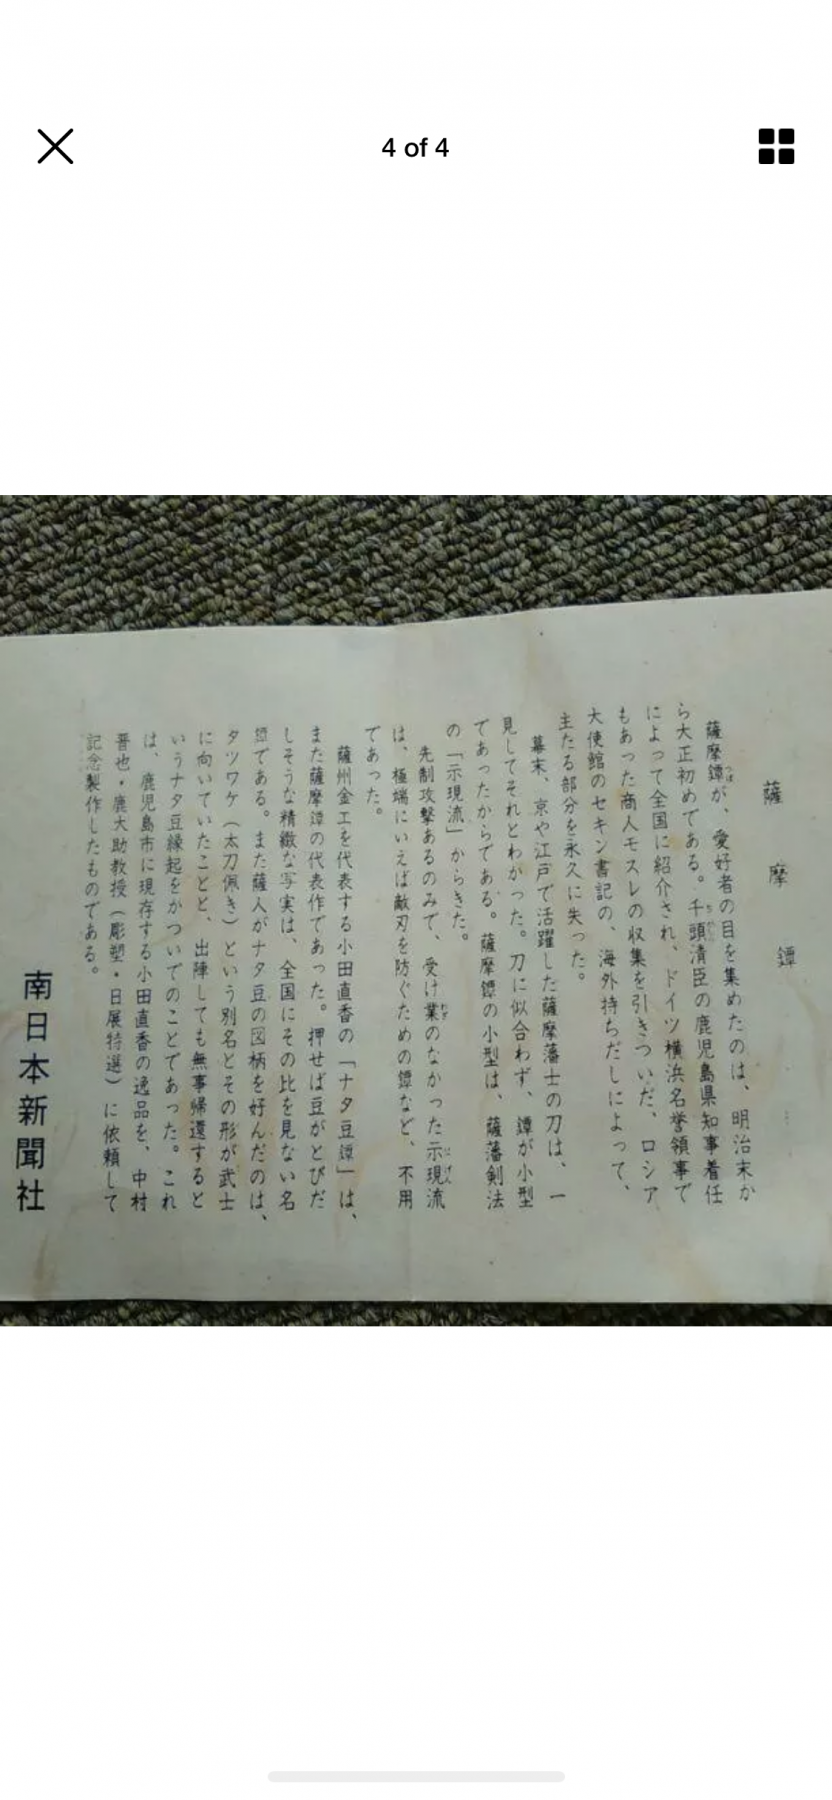 4 of 4
薩摩鐔
薩摩鐔が、愛好者の目を集めたのは、明治末か
ら大正初めである。千頭清臣の鹿児島県知事着任
によって全国に紹介され、ドイツ横浜名誉領事で
もあった商人モスレの収集を引きついだ、ロシア
大使館のセキン書記の、海外持ちだしによって、
主たる部分を永久に失った。
幕末、京や江戸で活躍した薩摩藩士の刀は、一
見してそれとわかった。刀に似合わず、鐔が小型
であったからである。薩摩鐔の小型は、薩藩剣法
の「示現流」からきた。
先制攻撃あるのみで、受け業のなかった示現流
は、極端にいえば敵刃を防ぐための鐔など、不用
であった。
薩州金工を代表する小田直香の「ナタ豆鐔」は、
また薩摩鐔の代表作であった。押せば豆がとびだ
しそうな精緻な写実は、全国にその比を見ない名
鐔である。また薩人がナタ豆の図柄を好んだのは、
タツワケ（太刀佩き）という別名とその形が武士
に向いていたことと、出陣しても無事帰還すると
いうナタ豆縁起をかついでのことであった。これ
は、鹿児島市に現存する小田直香の逸品を、中村
晋也・鹿大助教授（彫塑・日展特選）に依頼して
記念製作したものである。
南日本新聞社